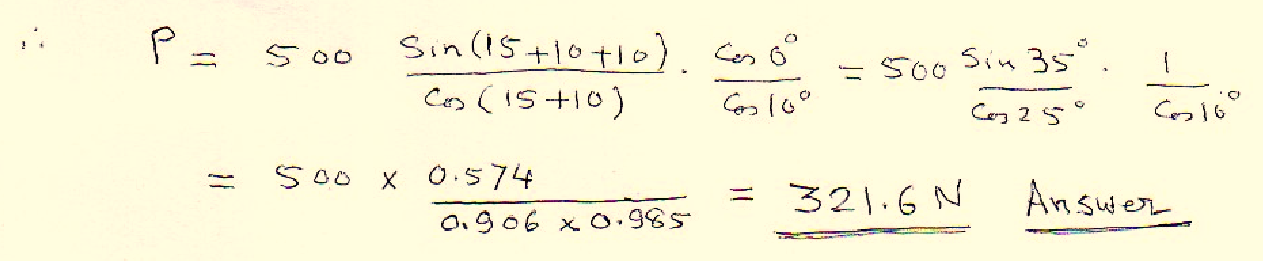 ∴ P = 500 Sin(15+10+10)/Cos(15+10) . Cos 0°/Cos 10° = 500 Sin 35°/Cos 25° . 1/Cos 10°
= 500 x 0.574/0.906 x 0.985 = 321.6 N Answer